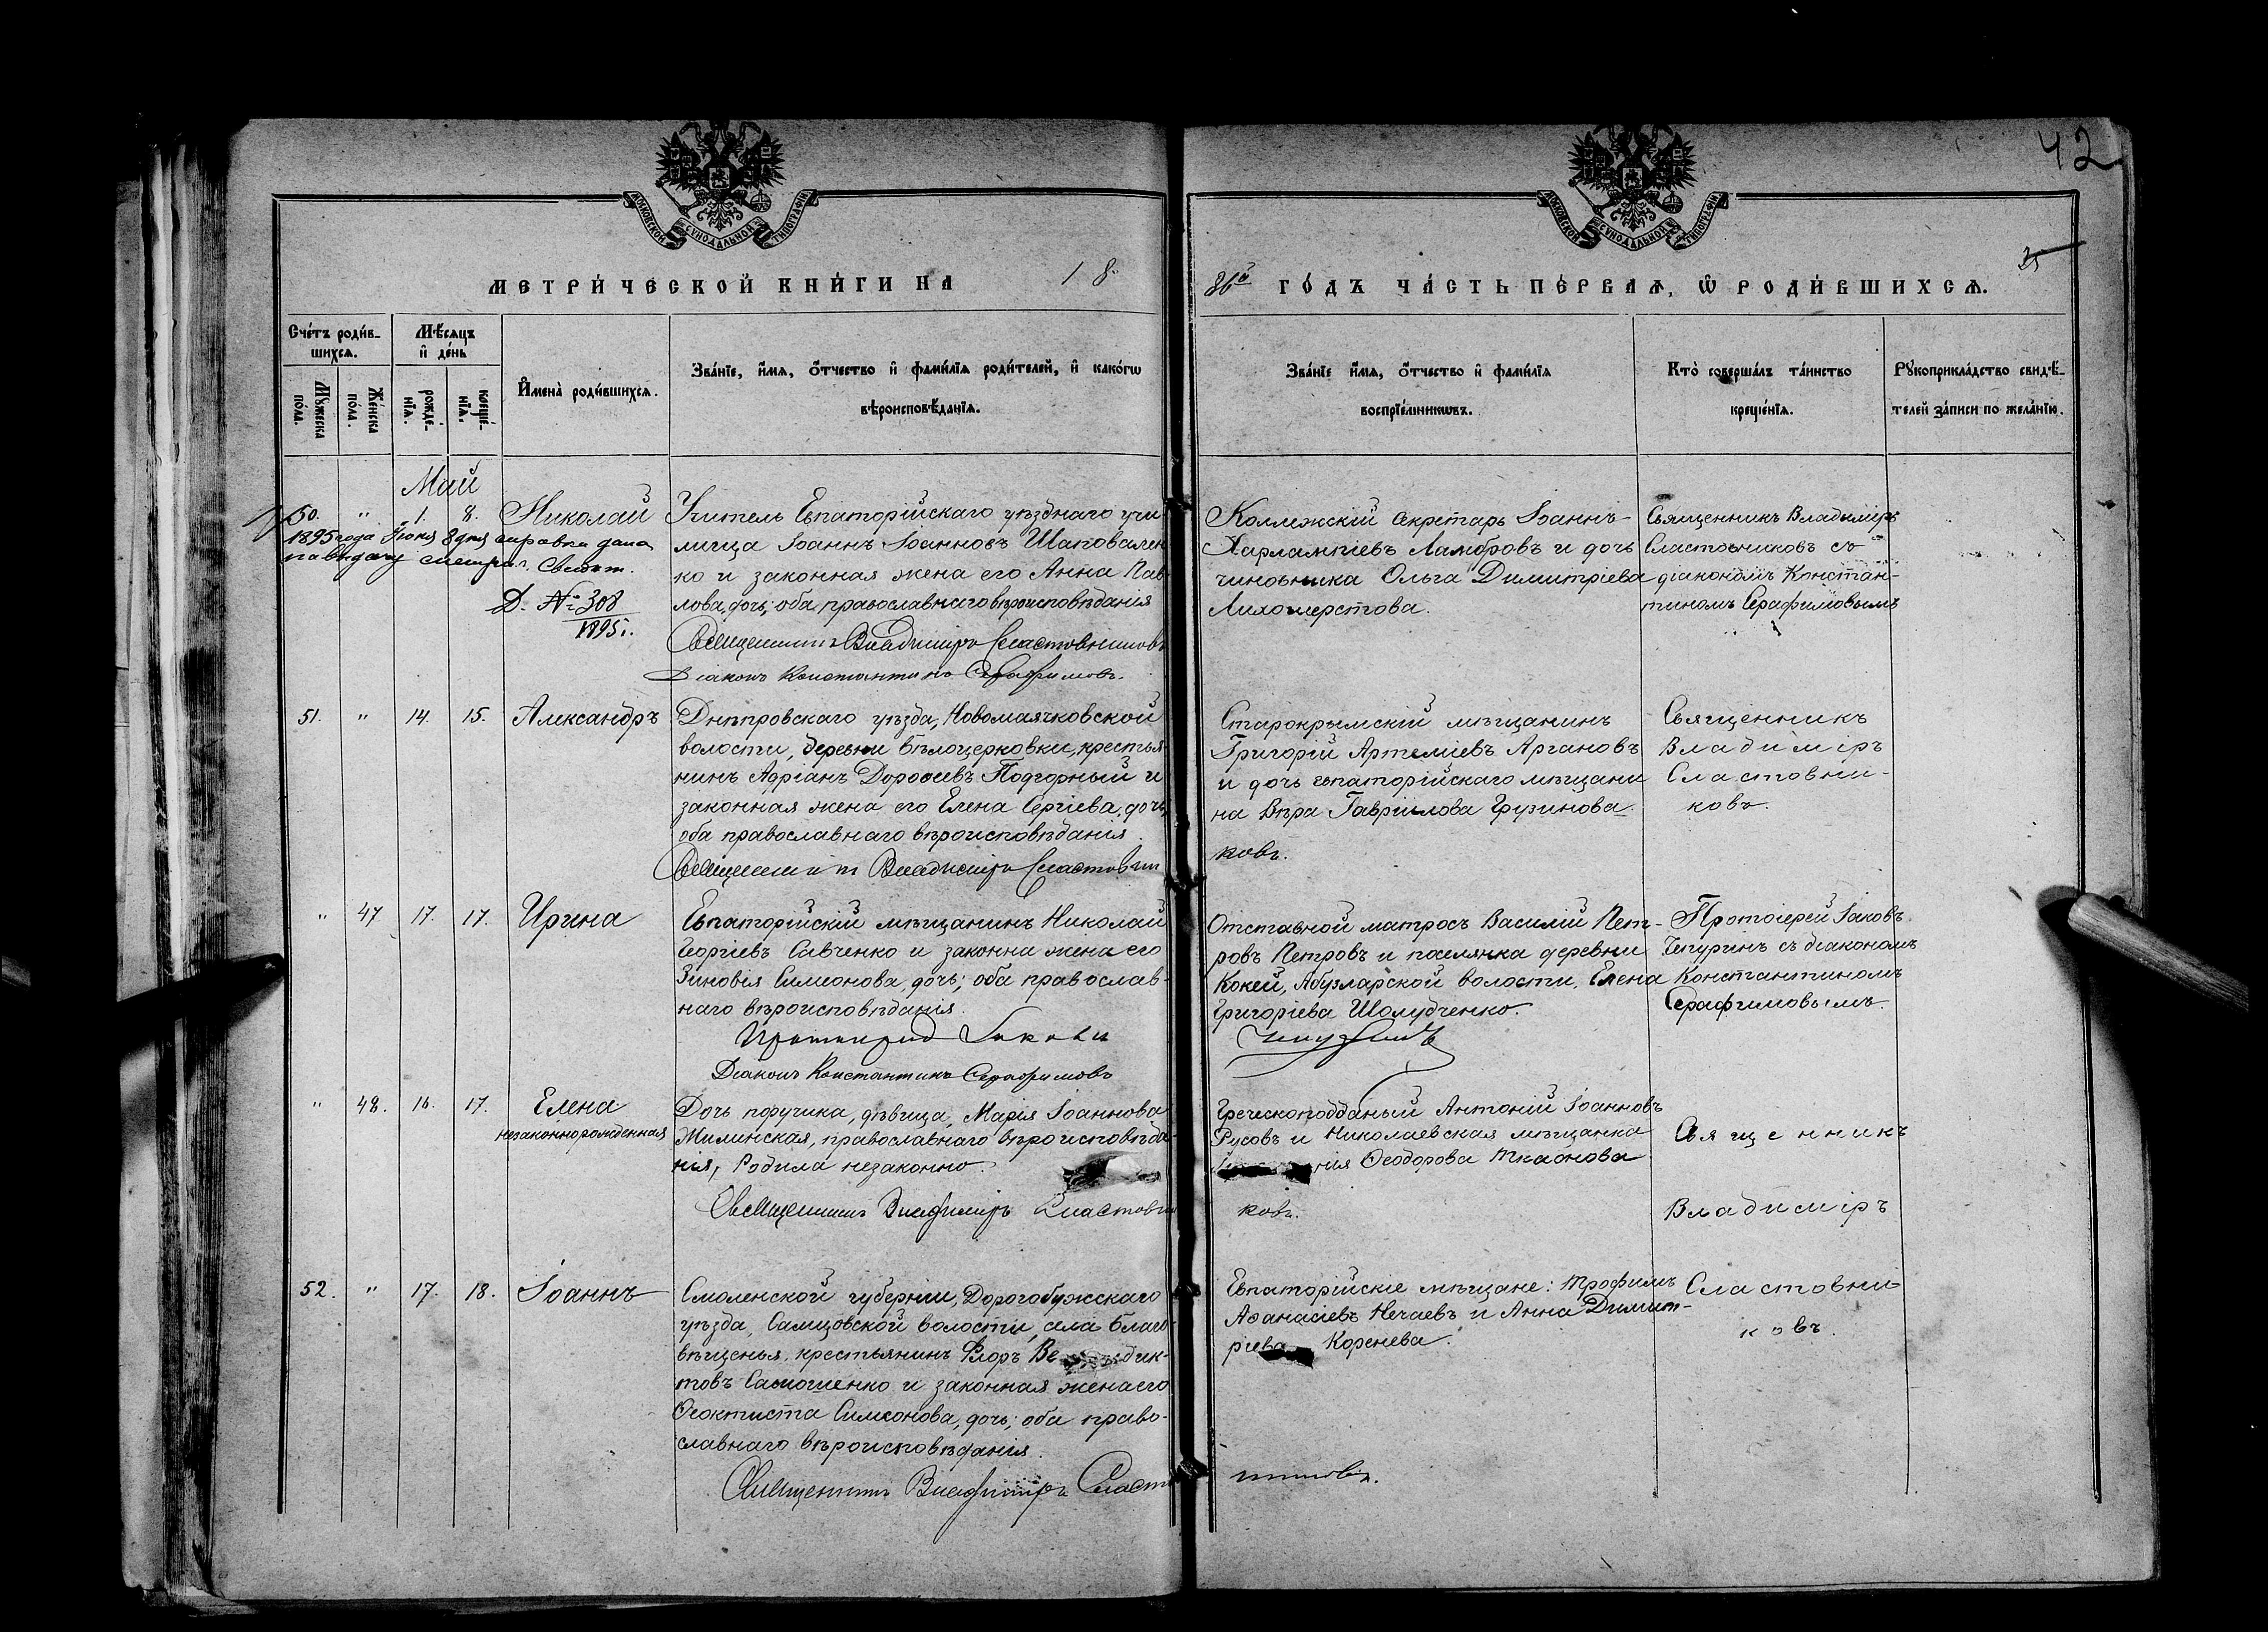 42
МОСКОВСКОЙ СѴНОДАЛЬНОЙ ТИПОГРАФІИ
МОСКОВСКОЙ СѴНОДАЛЬНОЙ ТИПОГРАФІИ
МЕТРИ́ЧЕСКОЙ КНИ́ГИ НА 18
86й ГО́ДЪ ЧА́СТЬ ПЕ́РВАЯ, Ѡ РОДИ́ВШИХСЯ.
Сче́тъ роди́в-
шихся.
Мѣ́сяцъ
и де́нь
Му́жеска по́ла.
Же́нска по́ла.
рожде́-нїя.
креще́-нїя.
Имена̀ роди́вшихся.
Зва́нїе, и́мя, о́тчество и фами́лїя роди́телей, и како́гѡ
вѣроисповѣ́данїя.
Зва́нїе и́мя, о́тчество и фами́лїя
воспрїе́мникѡвъ.
Кто̀ соверша́лъ та́инство
креще́нїя.
Рꙋкоприкла́дство свидѣ́-
телей за́писи по жела́нїю.
Май
50. " 1. 8. Николай
1895 года Іюня 8 дня справка дана
на выдачу метрич. Свидѣт.
Д. № 308
1895 г.
Учитель Евпаторійскаго уѣзднаго учи
лища Іоаннъ Іоанновъ Шаповален
ко и законная жена его Анна Пав
лова, дочь; оба православнаго вѣроисповѣданія
Священникъ Владиміръ Сластовниковъ
Діаконъ Константинъ Серафимовъ.
Коллежскій секретарь Іоаннъ
Харлампіевъ Ламбровъ и дочь
чиновника Ольга Димитріева
Лихошерстова.
Священникъ Владиміръ
Сластовниковъ съ
діакономъ Констан-
тиномъ Серафимовымъ
51. " 14. 15. Александръ
Днѣпровскаго уѣзда, Новомаячковской
волости, деревни Бѣлоцерковки, крестья-
нинъ Адріанъ Дороѳеевъ Подгорный и
законная жена его Елена Сергіева, дочь,
оба православнаго вѣроисповѣданія.
Священникъ Владиміръ Сластовни
Старокрымскій мѣщанинъ
Григорій Артеміевъ Аргановъ
и дочь евпаторійскаго мѣщани
на Вѣра Гавріилова Грузинова.
ковъ.
Священникъ
Владиміръ
Сластовни-
ковъ.
" 47 17. 17. Ирина
Евпаторійскій мѣщанинъ Николай
Георгіевъ Савченко и законна жена его
Зиновія Симеонова, дочь; оба православ-
наго вѣроисповѣданія.
Протоіерей Іаковъ
Діаконъ Константинъ Серафимовъ
Отставной матросъ Василій Пет-
ровъ Петровъ и поселянка деревни
Кокей, Абузларской волости, Елена
Григоріева Шолудченко.
Чепуринъ
Протоіерей Іаковъ
Чепуринъ съ діакономъ
Константиномъ
Серафимовымъ.
" 48. 16. 17. Елена
незаконнорожденная
Дочь поручика, дѣвица, Марія Іоаннова
Жилинская, православнаго вѣроисповѣда-
нія, Родила незаконно.
Священникъ Владиміръ Сластовни
Греческоподданый Антоній Іоанновъ
Русовъ и Николаевская мѣщанка
нія Ѳеодорова
ковъ.
Священникъ
Владиміръ
52. " 17. 18. Іоаннъ
Смоленской губерніи, Дорогобужскаго
уѣзда, Самцовской волости, села Благо-
вѣщенья, крестьянинъ Флоръ Ве дик-
товъ Самошенко и законная жена его
Ѳеоктиста Симеонова, дочь; оба право-
славнаго вѣроисповѣданія.
Священникъ Владиміръ Сласто
Евпаторійскіе мѣщане: Трофимъ
Аѳанасіевъ Нечаевъ и Анна Димит-
ріева Коренева.
Сластовни-
ковъ.